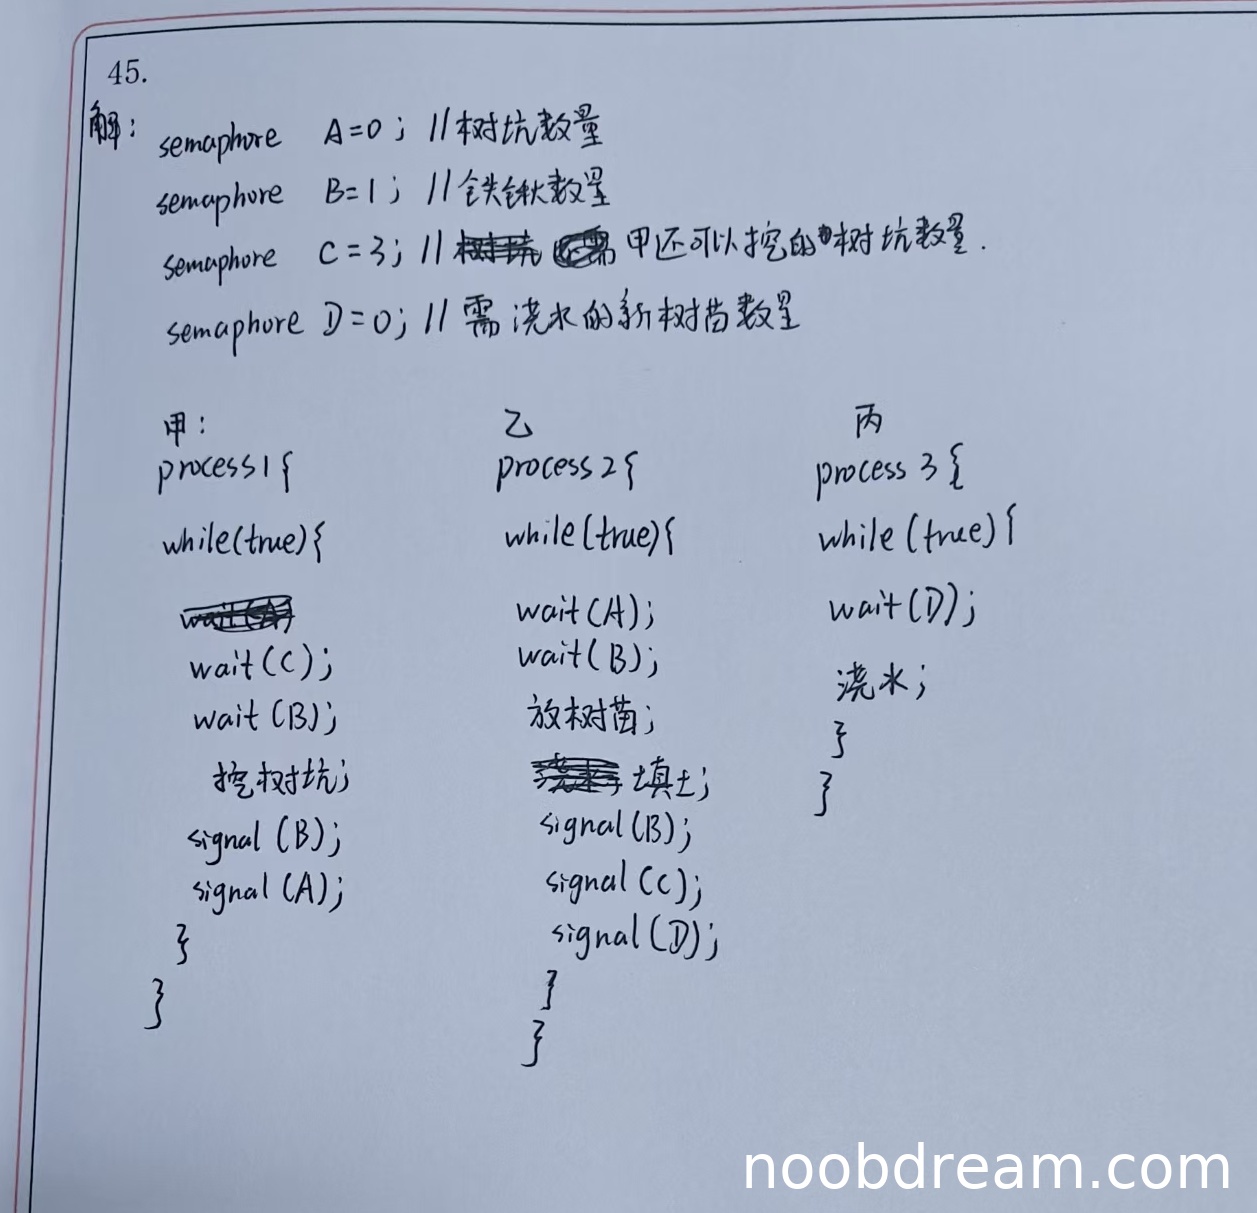 45.
解:
semaphore A=0; //树坑数量
semaphore B=1; //铁锹数量
semaphore C=3; //甲还可以挖的树坑数量.
semaphore D=0; //需浇水的新树苗数量
甲:
process1{
while(true){
wait(C);
wait(B);
挖树坑;
signal(B);
signal(A);
}
}
乙
process2{
while(true){
wait(A);
wait(B);
放树苗;
填土;
signal(B);
signal(C);
signal(D);
}
}
丙
process3{
while(true){
wait(D);
浇水;
}
}
noobdream.com